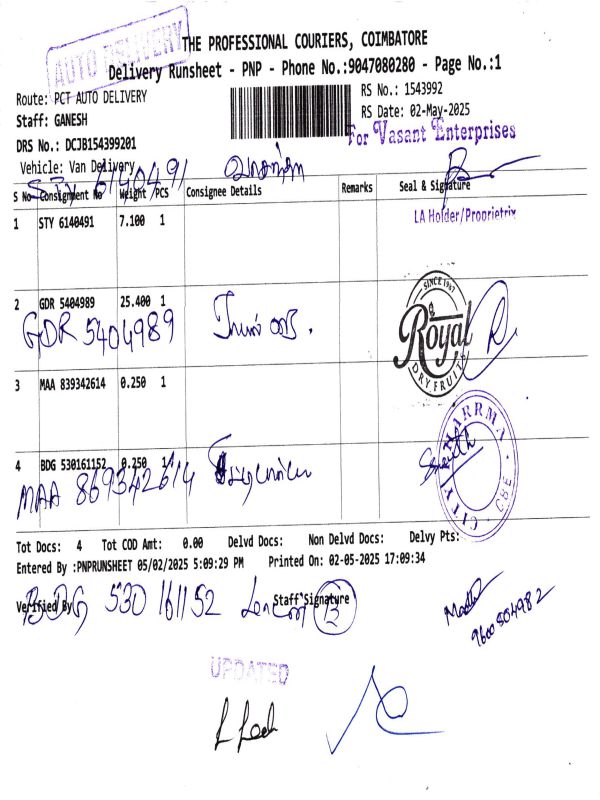 AUTO DELIVERY
THE PROFESSIONAL COURIERS, COIMBATORE
Delivery Runsheet - PNP - Phone No.:9047080280 - Page No.:1
Route: PCT AUTO DELIVERY
RS No.: 1543992
Staff: GANESH
RS Date: 02-May-2025
For Vasant Enterprises
DRS No.: DCJB154399201
Vehicle: Van Delivery
STY 6140491 வசந்தா
S No Consignment No Weight PCS Consignee Details Remarks Seal & Signature
LA Holder/Proprietrix
1 STY 6140491 7.100 1
SINCE 1967
2 GDR 5404989 25.400 1
GDR 5404989
Royal
DRY FRUITS
3 MAA 839342614 0.250 1
CITY CBE
4 BDG 530161152 0.250 1
MAA 869342614
Tot Docs: 4 Tot COD Amt: 0.00 Delvd Docs: Non Delvd Docs: Delvy Pts:
Entered By :PNPRUNSHEET 05/02/2025 5:09:29 PM Printed On: 02-05-2025 17:09:34
Verified By Staff Signature
BDG 530 161152
9600504982
UPDATED